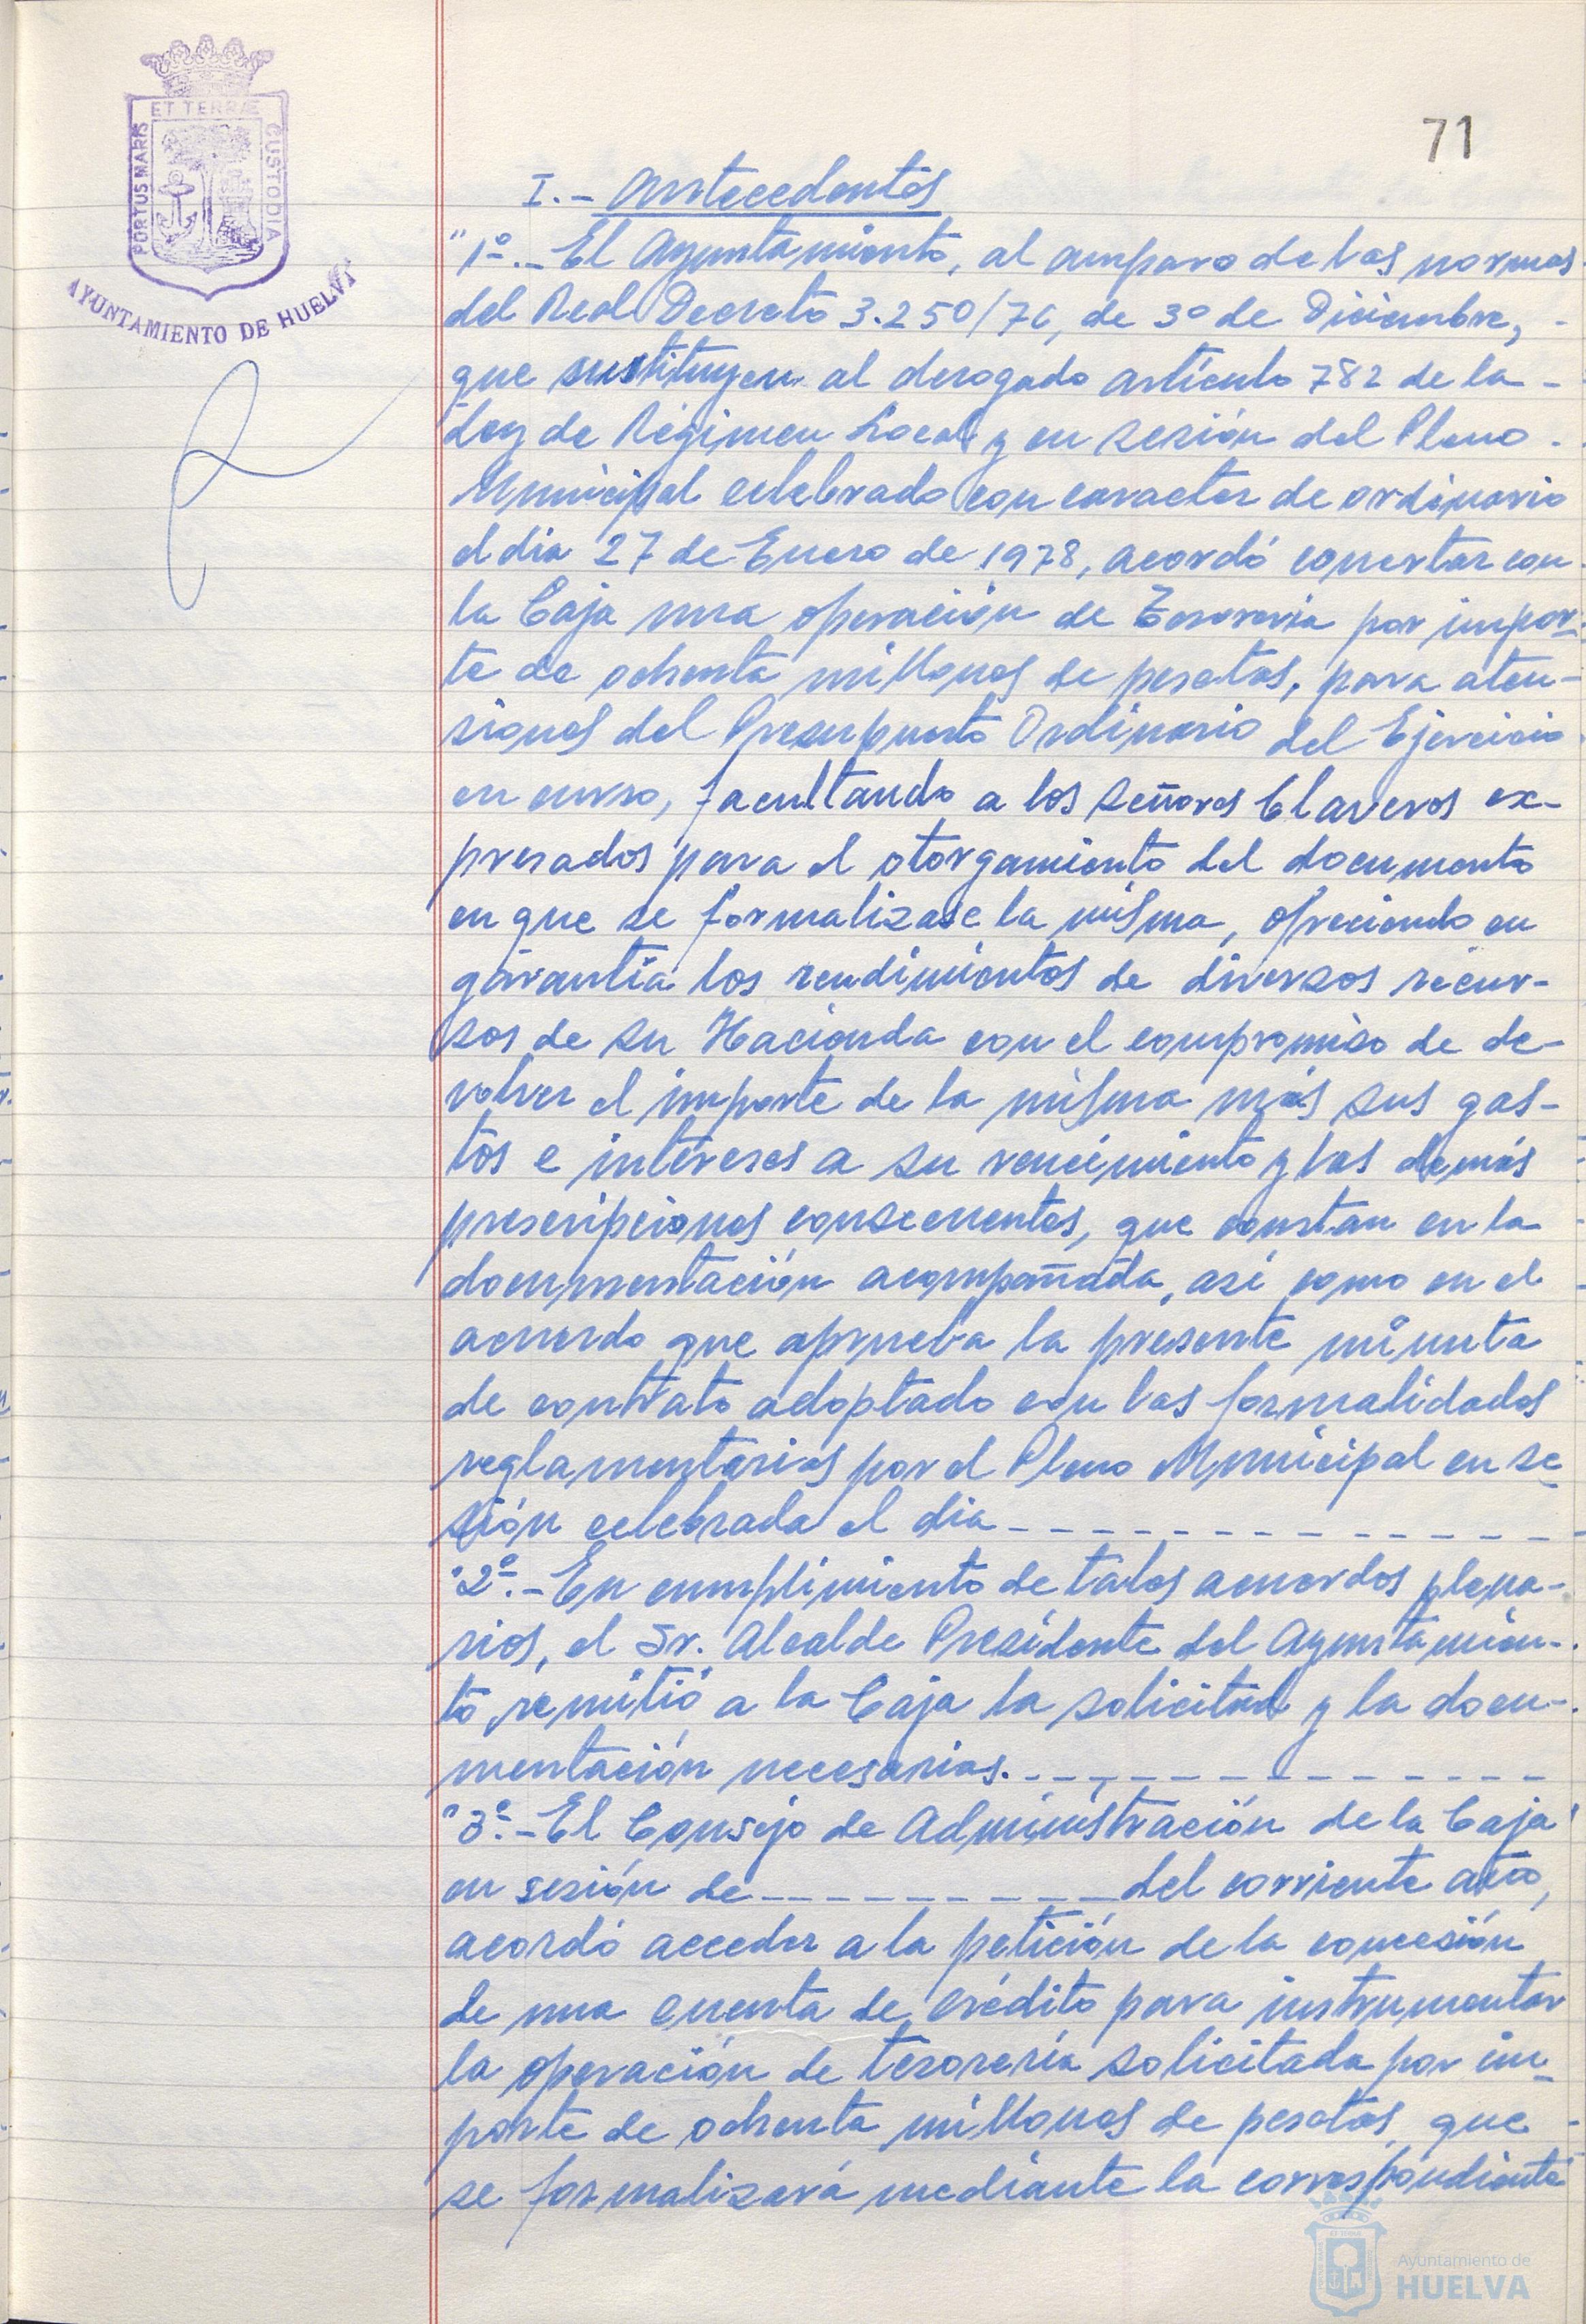 ET TERRÆ
PORTUS MARIS
CUSTODIA
AYUNTAMIENTO DE HUELVA
71
I.- Antecedentes
"1º.- El Ayuntamiento, al amparo de las normas
del Real Decreto 3.250/76, de 30 de Diciembre, -
que sustituyen al derogado artículo 782 de la -
Ley de Régimen Local y en sesión del Pleno -
Municipal celebrado con caracter de ordinario
el dia 27 de Enero de 1978, acordó concertar con
la Caja una operación de Tesorería por impor-
te de ochenta millones de pesetas, para aten-
siones del Presupuesto Ordinario del Ejercicio
en curso, facultando a los señores Claveros ex-
presados para el otorgamiento del documento
en que se formalizase la misma, ofreciendo en
garantía los rendimientos de diversos recur-
sos de su Hacienda con el compromiso de de-
volver el importe de la misma más sus gas-
tos e intereses a su vencimiento y las demás
prescripciones consecuentes, que constan en la
documentación acompañada, así como en el
acuerdo que aprueba la presente minuta
de contrato adoptado con las formalidades
reglamentarias por el Pleno Municipal en se-
sión celebrada el dia - - - - - - - - - - - - - -
"2º.- En cumplimiento de tales acuerdos plena-
rios, el Sr. Alcalde Presidente del Ayuntamien-
to remitió a la Caja la solicitud y la docu-
mentación necesarias. - - - - - - - - - - - - -
"3º.- El Consejo de Administración de la Caja
en sesión de - - - - - - - - - - del corriente año,
acordó acceder a la petición de la concesión
de una cuenta de crédito para instrumentar
la operación de tesorería solicitada por im-
porte de ochenta millones de pesetas, que -
se formalizará mediante la correspondiente
Ayuntamiento de
HUELVA